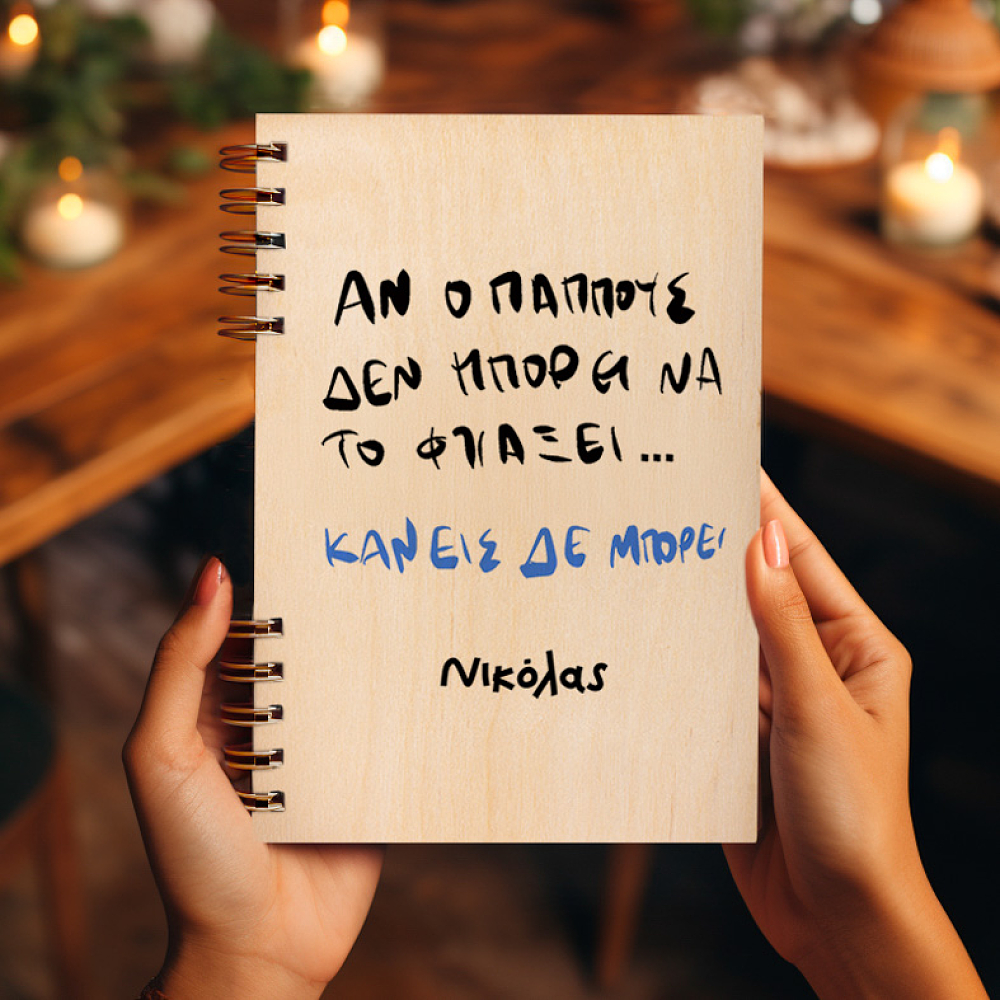 ΑΝ Ο ΠΑΠΠΟΥΣ
ΔΕΝ ΜΠΟΡΕΙ ΝΑ
ΤΟ ΦΤΙΑΞΕΙ...
ΚΑΝΕΙΣ ΔΕ ΜΠΟΡΕΙ
Νικόλας